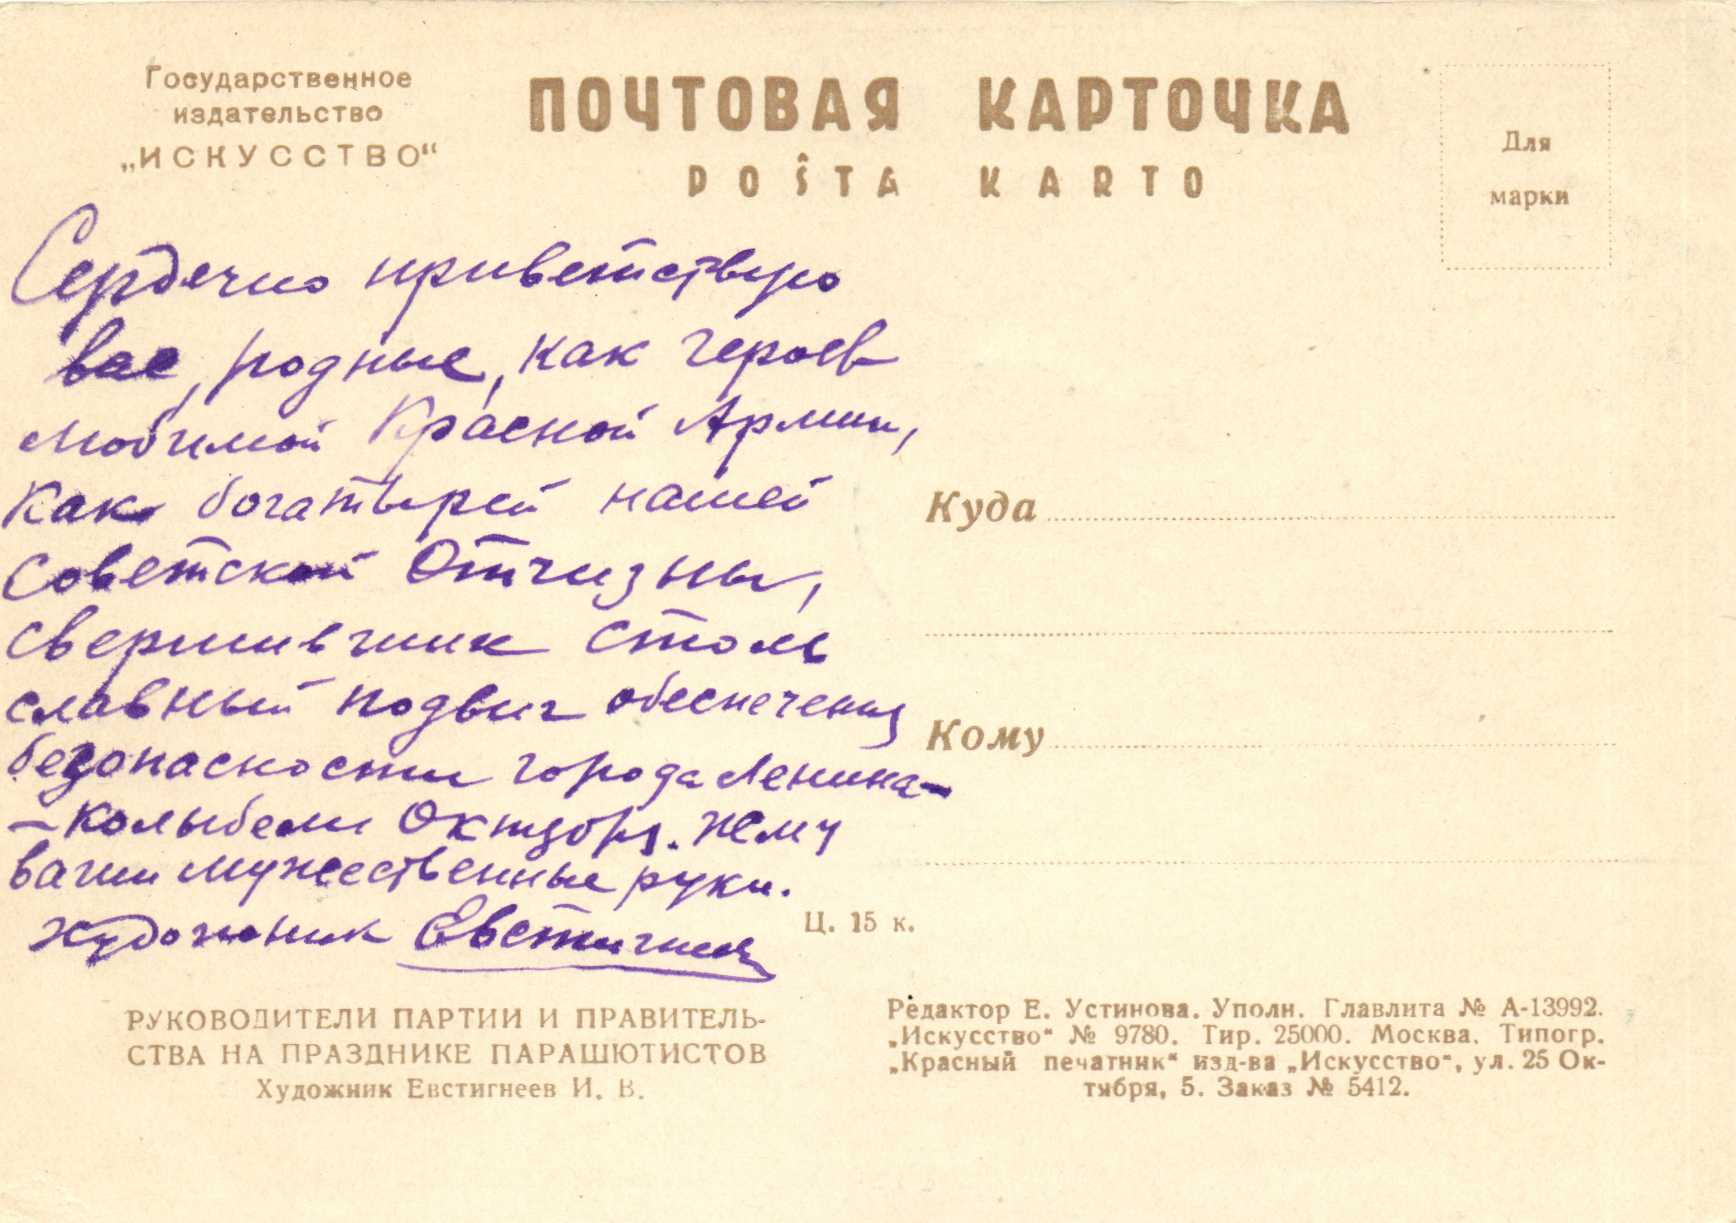 Государственное
издательство
„ИСКУССТВО“
ПОЧТОВАЯ КАРТОЧКА
POŜTA KARTO
Для
марки
Сердечно приветствую
вас, родные, как героев
любимой Красной Армии,
как богатырей нашей
советской Отчизны,
свершивших столь
славный подвиг обеспечения
безопасности города Ленина-
-колыбели Октября. Жму
ваши мужественные руки.
Художник Евстигнеев
Куда
Кому
Ц. 15 к.
РУКОВОДИТЕЛИ ПАРТИИ И ПРАВИТЕЛЬ-
СТВА НА ПРАЗДНИКЕ ПАРАШЮТИСТОВ
Художник Евстигнеев И. В.
Редактор Е. Устинова. Уполн. Главлита № А-13992.
„Искусство“ № 9780. Тир. 25000. Москва. Типогр.
„Красный печатник“ изд-ва „Искусство“, ул. 25 Ок-
тября, 5. Заказ № 5412.